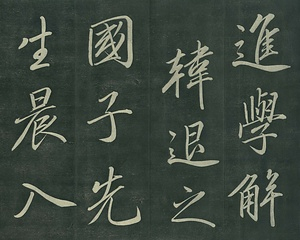 進學解
韓退之
國子先
生晨入